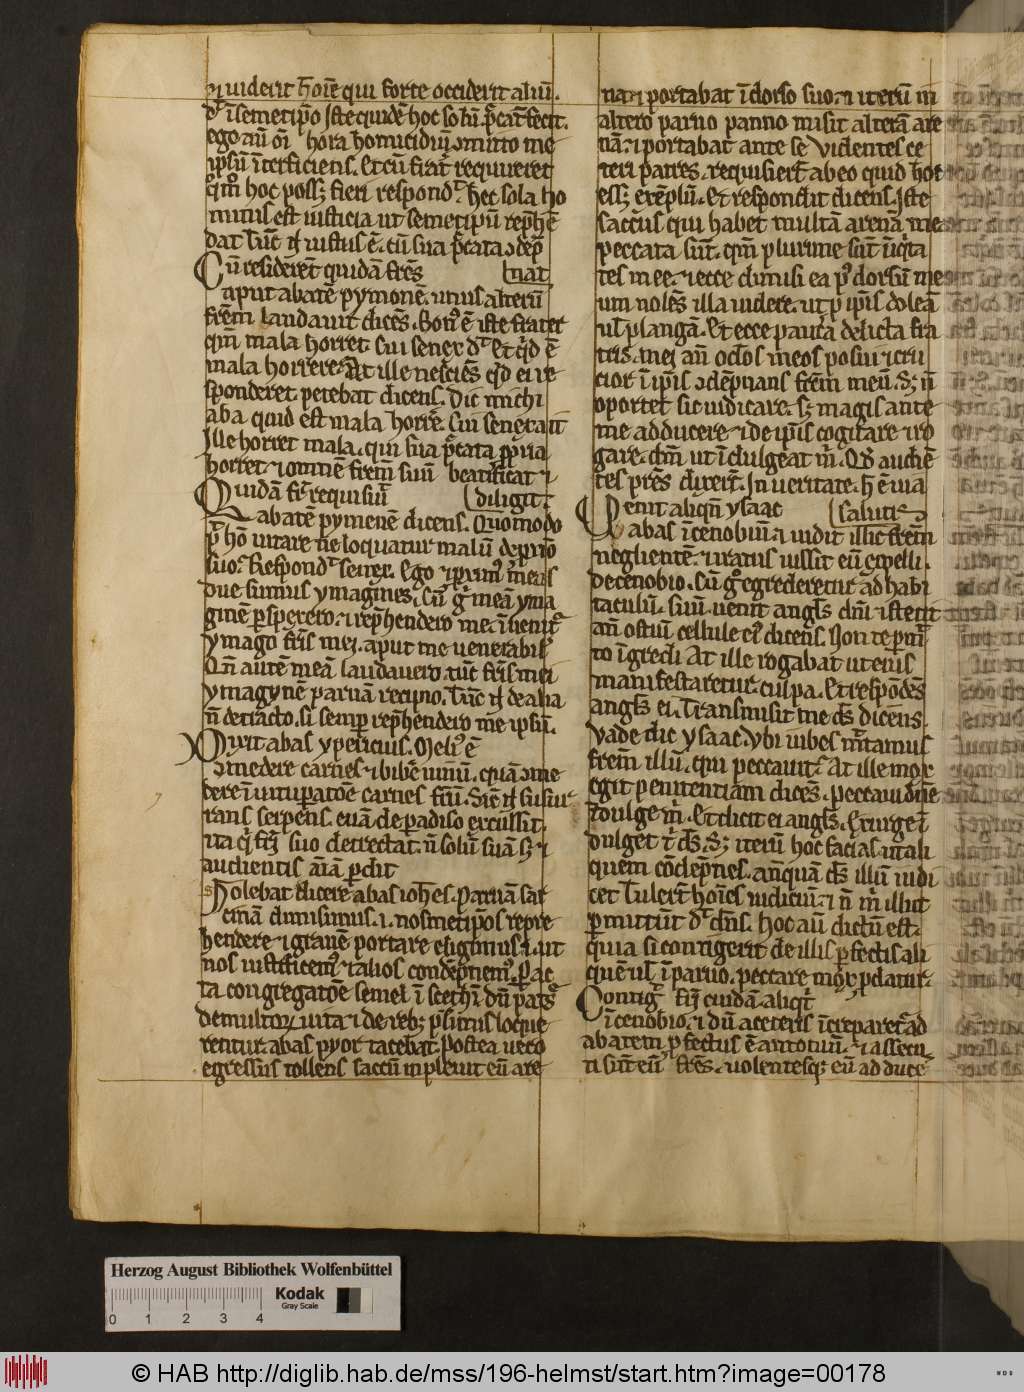 ⁊ viderit hoīe qui forte occiderit aliū.
d' ī semetip̄o Iste quidē hoc solū p̄cat̄ fecit.
ego aū oī hora homicidiū ɔmitto me
ip̄sū īterficiens. Et cū frat̄ requireret
hoc poss; fieri respond' hec sola ho
minis est iusticia ut semetip̄u rep̄hē
dat. Tūc n̄ iustus ē. cū sua p̄cata ɔdēp̄
Cū residerēt quidā frēs nat
aput abatē pymonē. unus alterū
frēm laudauit dicēs. Bon' ē iste frater
qm̄ mala horret Cui senex d' Et qd ē
mala horrere. At ille nesciēs qd ei re
sponderet petebat dicens. Dic michi
aba quid est mala horrē. Cui senex ait
Ille horret mala. qui sua p̄cata ppria
horret ⁊ omnē frem̄ suū beatificat ⁊
Quidā fr̄ requisiu̅ diligit.
abatē pymenē dicens. Quomodo
p hō uitare ne loquatur malū de pxiō
suo. Respond' senex. Ego ⁊ pxim' meus
due sumus ymagines. Cū g meā yma
ginē pspexero. ⁊ rep̄hendero me. īuenit
ymago fr̄is mei. aput me uenerabil'
Qn̄ autē meā laudauero. tūc fr̄is mei
ymaginē paruā recipio. Tūc n̄ de alia
n̄ detracto. si semp rep̄hendero me ipsū.
Dixit abas ypericius. Meli' ē
ɔmedere carnes ⁊ bibē uinū. quā ɔme
dere ī uitupatōe carnes frū. Sic n̄ susur
rans serpens. euā de padiso excussit.
ita q fr̄i suo detrectat. n̄ solū suā s; ⁊
audientis aīā pdit
Solebat dicere abas ioh̄es. Paruā sar
cinā dimisimus. i. nosmetip̄os repre
hendere ⁊ grauē portare eligimus. i. ut
nos iustificem' ⁊ alios condēpnem'. Fac
ta congregatōe semel ī scethi dū pat̄s
de multor uita ⁊ de reb; psitus loque
rentur. abas pyor tacebat. Postea uero
egressus tollens saccū inpleuit eū are
na. ⁊ portabat ī dorso suo. ⁊ iterū in
altero paruo panno misit alterā are
nā. ⁊ portabat ante se Videntes ce
teri patres. requisiert̄ ab eo quid hoc
ess; exēplū. Et respondit dicens. Iste
saccus qui habet multā arenā. me
peccata sūt. qm̄ plurime sūt iiq̄ta
tes mee. ⁊ ecce dimisi ea p' dorsū me
um nolēs illa uidere. ut p ip̄is doleā
ul' plangā. Et ecce pauca delicta fra
tris mei an̄ oclos meos posui ⁊ cru
cior ī ip̄is ɔdēpnans frēm meū. S; n̄
oportet sic iudicare. s; magis ante
me adducere ⁊ de ip̄is cogitare ⁊ ro
gare. dm̄ ut īdulgeat m̄. Qd audiē
tes pr̄es dixert̄. In ueritate. h̄ ē uia
Uenit aliqn̄ ysaac salutis
abas ī cenobiū. ⁊ uidit illic frēm
neglientē. ⁊ iratus iussit eū expelli
de cenobio. Cū g egrederetur ad habi
taculū suū. uenit angl's dn̄i ⁊ stetit
an̄ ostiū cellule ei' dicens. Non te pm̄
to īgredi At ille rogabat ut eius
manifestaretur culpa. Et respōdēs
angl's ei. Transmisit me ds̄ dicens.
Vade dic ysaac. Vbi iubes m̄tamus
frēm illū. qui peccauit. At ille mox
egit penitentiam dicēs. peccaui dn̄e
īdulge m̄. Et dicit ei angl's. Exurge ī
dulget t̄ ds̄. S; iterū hoc facias. ut ali
quem cōdēpnes. an̄quā ds̄ illū iudi
cet Tulert̄ hoīes iudiciū. ⁊ n̄ m̄ illut
pmittūt d' dn̄s. hoc aū dictū est.
quia si contigerit de illis pfectis ali
quē ul' ī paruo. peccare mox pdatur.
Contigr̄ fr̄i cuidā. aliqt̄
ī cenobio. ⁊ dū a ceteris īcreparet̄ ad
abatem pfectus ē antoniū. ⁊ assecu
ti sūt eū frēs. uolentesq; eū adduce
Herzog August Bibliothek Wolfenbüttel
Kodak
Gray Scale
0 1 2 3 4
© HAB http://diglib.hab.de/mss/196-helmst/start.htm?image=00178